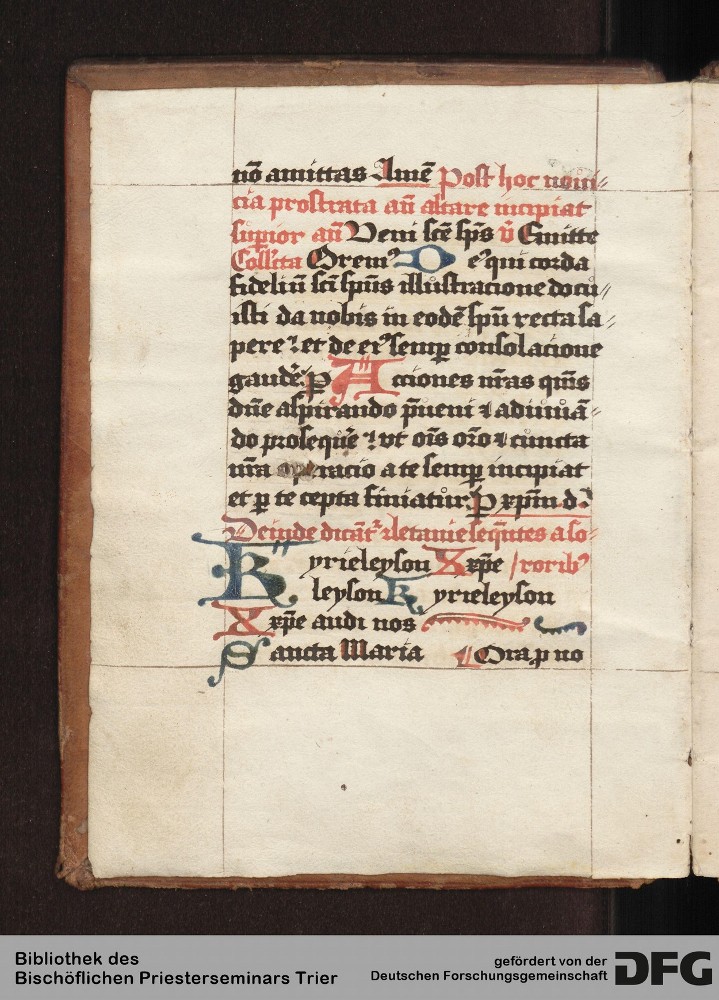 nō amittas Amē Post hoc noui⸗
cia prostrata an̄ altare incipiat
suꝑior an̄ Veni sc̄e sp̄s v̄ Emitte
Coll̄cta Oremꝰ Deꝰ qui corda
fideliū sc̄i sp̄us illustracione docu⸗
isti da nobis in eodē sp̄u recta sa⸗
pere et de eiꝰ semꝑ consolacione
gaudē. P Acciones nr̄as qūs
dn̄e aspirando p̄ueni ⁊ adiuuā⸗
do prosequē vt oīs or̄o ⁊ cuncta
nr̄a operacio a te semꝑ incipiat
et ꝑ te cepta finiatur. P xp̄m d
Deinde dicāt᷑ letanie seqn̄tes a so⸗
Kyrieleyson Xxp̄e /roribꝰ
leyson Kyrieleyson
Xxp̄e audi nos
Sancta Maria Ora ꝓ no
Bibliothek des
Bischöflichen Priesterseminars Trier
gefördert von der
Deutschen Forschungsgemeinschaft DFG